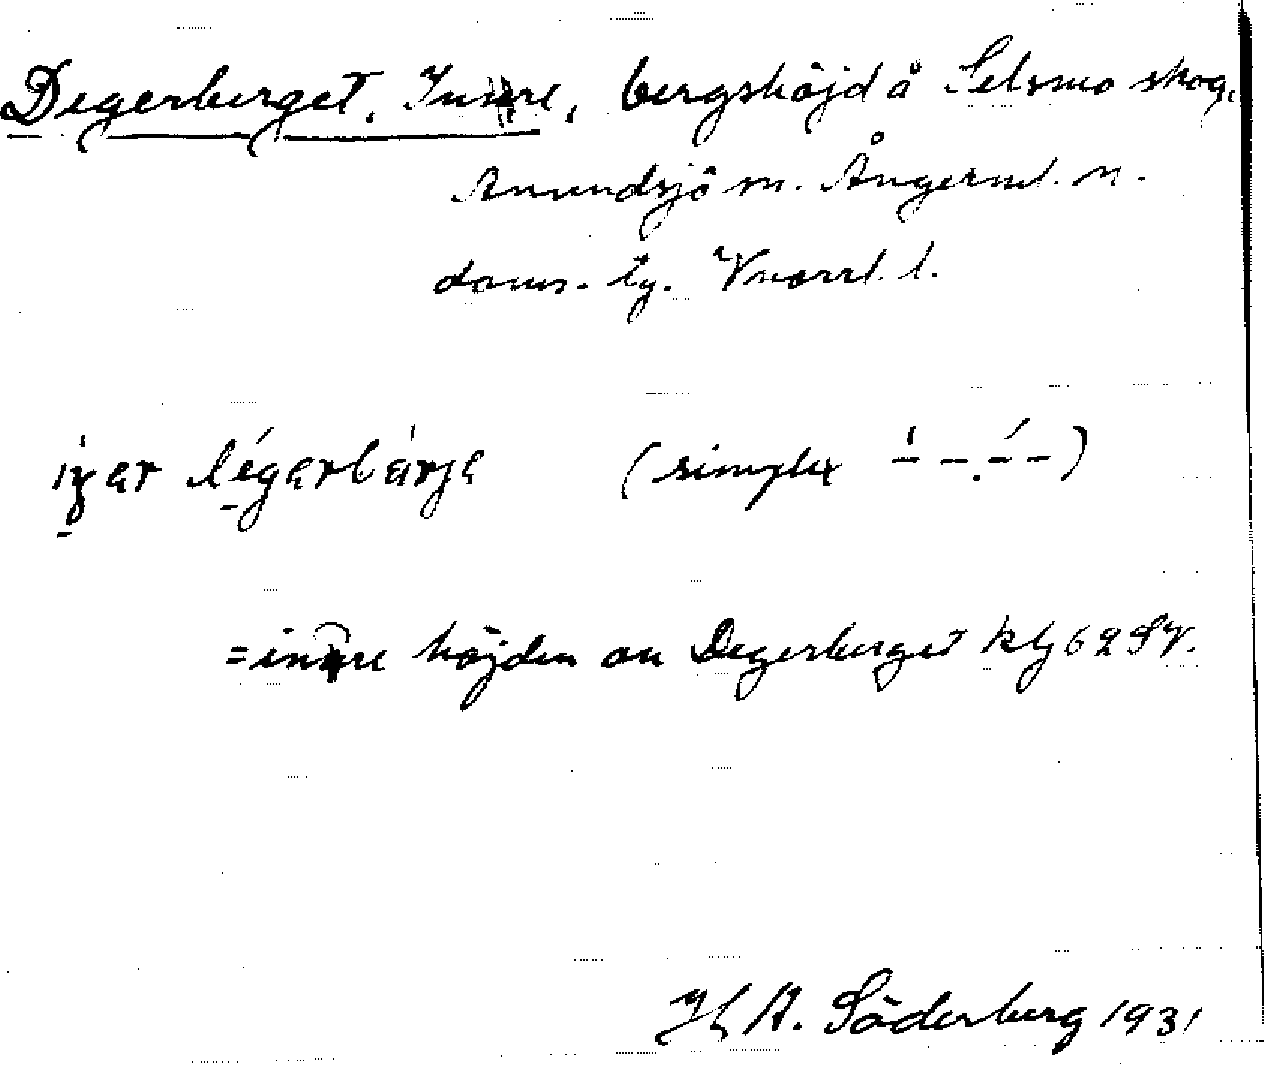 Degerberget, Innre, bergshöjd å Selsmo skog,
Anundsjö sn. Ångerml. n.
doms. tg. Vnorrl. l.
(simplex
= innre höjden av Degerberget kbj 62 SV.
H A. Söderberg 1931